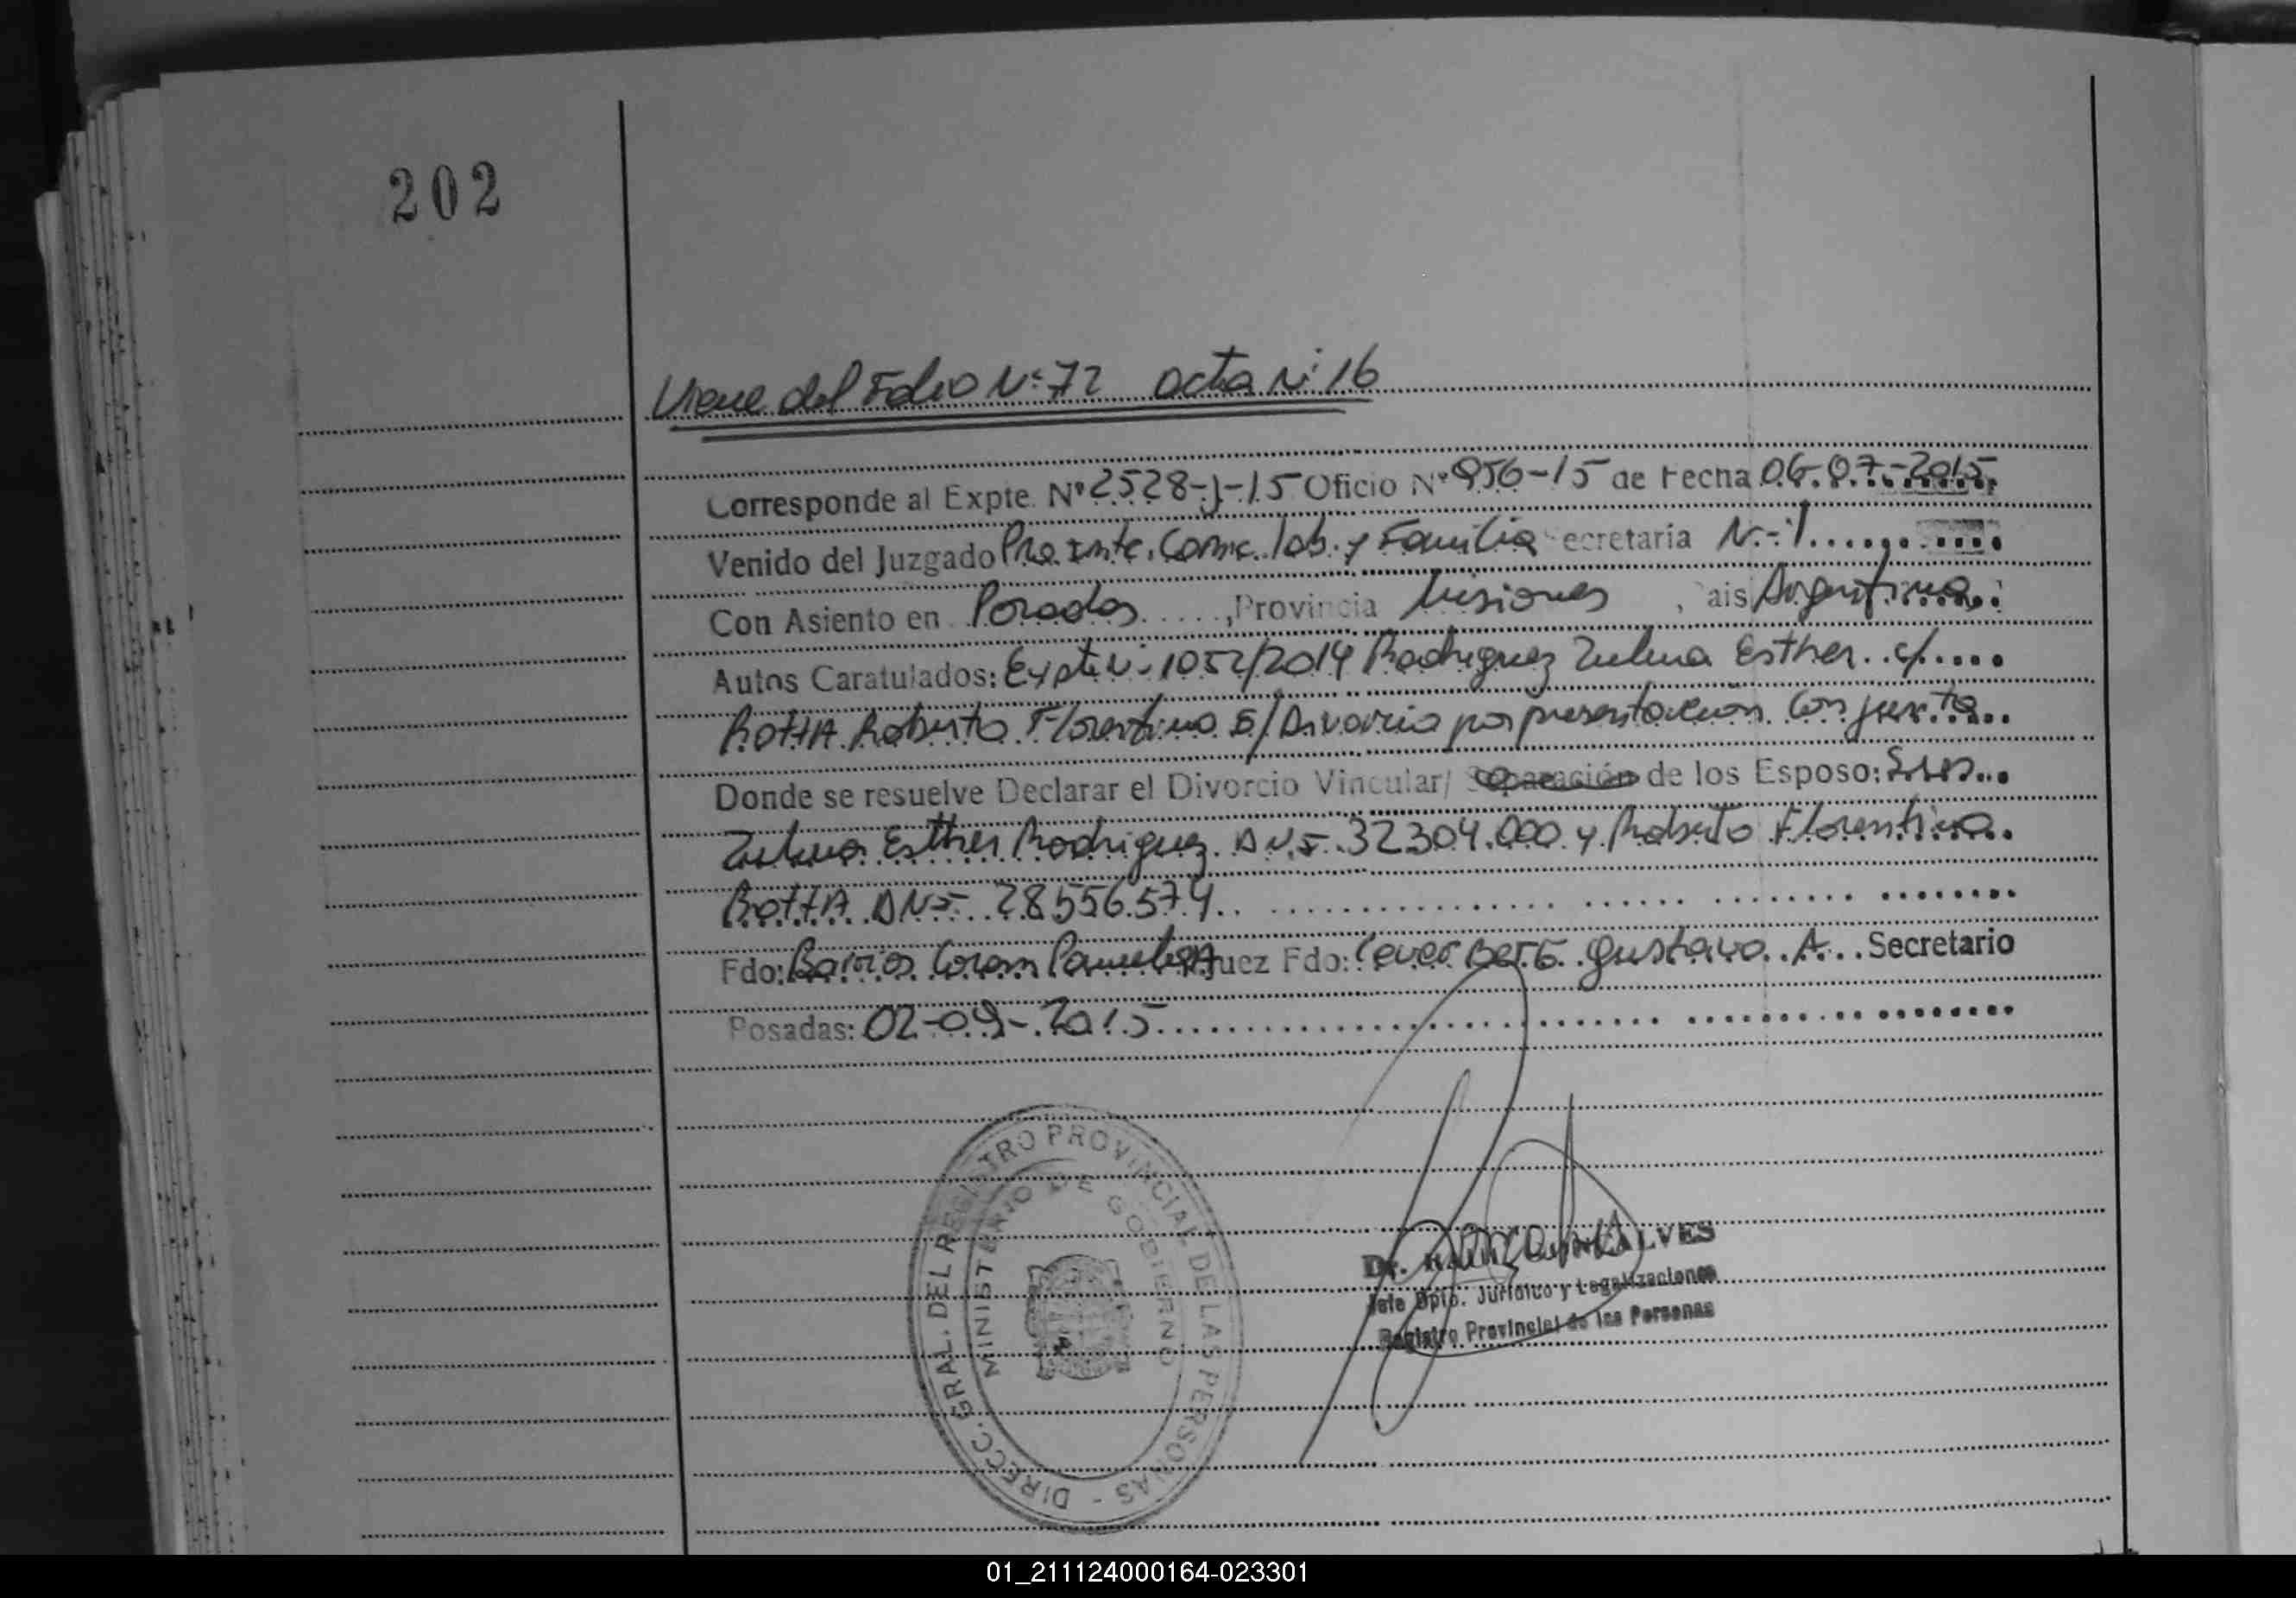 202
Viene del Folio Nº 72 acta Nº 16
Corresponde al Expte. Nº 2528-J-15 Oficio Nº 956-15 de Fecha 06-07-2015
Venido del Juzgado lab. y Familia Secretaria Nº 1
Con Asiento en Posadas, Provincia Misiones, Pais Argentina
Autos Caratulados: Expte Nº 1052/2014 Rodriguez Zulma Esther c/
BOTTA Roberto Florentino S/ Divorcio por presentación Conjunta
Donde se resuelve Declarar el Divorcio Vincular/ Separación de los Esposo: Sres
Zulma Esther Rodriguez DNI 32304.000 y Roberto Florentino
BOTTA DNI 28556.574
Fdo: Barrios Juez Fdo: Gustavo A. Secretario
Posadas: 02-09-2015
DIRECC. GRAL. DEL REGISTRO PROVINCIAL DE LAS PERSONAS -
MINISTERIO DE GOBIERNO
Dr.
Jefe Dpto. Juridico y Legalizaciones
Registro Provincial de las Personas
01_211124000164-023301